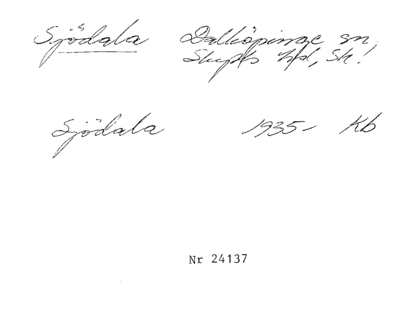 Sjödala Dalköpinge sn,
Skytts hd, Sk!
Sjödala 1935- Kb
Nr 24137